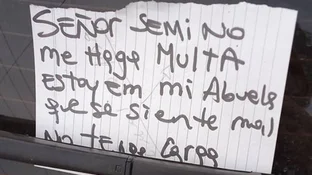 SEÑOR SEMI NO
me Haga MULTA
ESTOY EM mi Abuela
que se siente mal
NO TENGO Carga